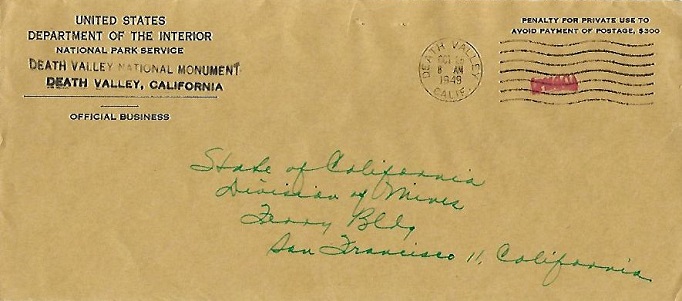 UNITED STATES
DEPARTMENT OF THE INTERIOR
NATIONAL PARK SERVICE
DEATH VALLEY NATIONAL MONUMENT
DEATH VALLEY, CALIFORNIA
OFFICIAL BUSINESS
DEATH VALLEY
OCT
8 AM
1949
CALIF.
PENALTY FOR PRIVATE USE TO
AVOID PAYMENT OF POSTAGE, $300
State of California
Division of Mines
Ferry Bldg
San Francisco 11, California